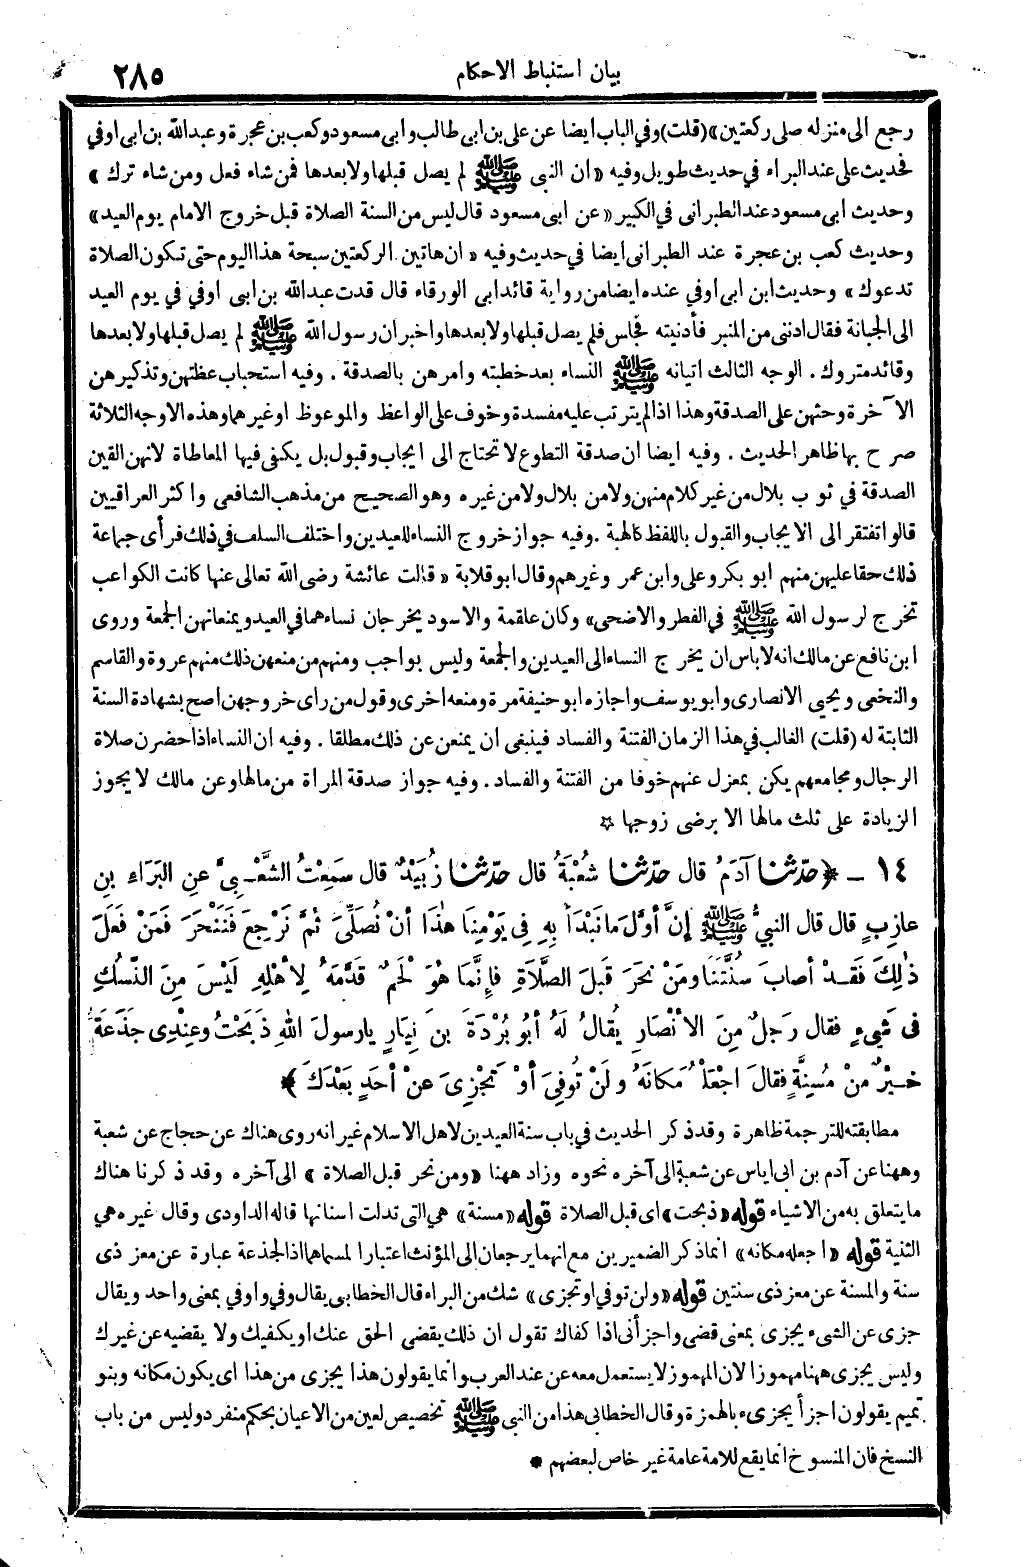 بيان استنباط الاحكام ٢٨٥
رجع الى منزله صلى ركعتين» (قلت) وفي الباب ايضا عن على بن ابى طالب وابى مسعود وكعب بن عجرة وعبد الله بن ابى اوفي
فحديث على عند البراء في حديث طويل وفيه «ان النبى ﷺ لم يصل قبلها ولا بعدها فمن شاء فعل ومن شاء ترك»
وحديث ابى مسعود عند الطبرانى في الكبير «عن ابى مسعود قال ليس من السنة الصلاة قبل خروج الامام يوم العيد»
وحديث كعب بن عجرة عند الطبرانى ايضا في حديث وفيه «ان هاتين الركعتين سبحة هذا اليوم حتى تكون الصلاة
تدعوك» وحديث ابن ابى اوفي عنده ايضا من رواية قائد ابى الورقاء قال قدت عبد الله بن ابى اوفي في يوم العيد
الى الجبانة فقال ادننى من المنبر فأدنيته فجلس فلم يصل قبلها ولا بعدها واخبر ان رسول الله ﷺ لم يصل قبلها ولا بعدها
وقائد متروك. الوجه الثالث اتيانه ﷺ النساء بعد خطبته وامرهن بالصدقة. وفيه استحباب عظتهن وتذكيرهن
الآخرة وحثهن على الصدقة وهذا اذا لم يترتب عليه مفسدة وخوف على الواعظ والموعوظ او غيرهما وهذه الاوجه الثلاثة
صرح بها ظاهر الحديث. وفيه ايضا ان صدقة التطوع لا تحتاج الى ايجاب وقبول بل يكفى فيها المعاطاة لانهن القين
الصدقة في ثوب بلال من غير كلام منهن ولا من بلال ولا من غيره وهو الصحيح من مذهب الشافعى واكثر العراقيين
قالوا تفتقر الى الايجاب والقبول باللفظ كالهبة. وفيه جواز خروج النساء للعيدين واختلف السلف في ذلك فرأى جماعة
ذلك حقا عليهن منهم ابو بكر وعلى وابن عمر وغيرهم وقال ابو قلابة «قالت عائشة رضى الله تعالى عنها كانت الكواعب
تخرج لرسول الله ﷺ في الفطر والاضحى» وكان علقمة والاسود يخرجان نساءهما في العيد ويمنعانهن الجمعة وروى
ابن نافع عن مالك انه لا باس ان يخرج النساء الى العيدين والجمعة وليس بواجب ومنهم من منعهن ذلك منهم عروة والقاسم
والنخعى ويحيى الانصارى وابو يوسف واجازه ابو حنيفة مرة ومنعه اخرى وقول من راى خروجهن اصح بشهادة السنة
الثابتة له (قلت) الغالب في هذا الزمان الفتنة والفساد فينبغى ان يمنعن عن ذلك مطلقا. وفيه ان النساء اذا حضرن صلاة
الرجال ومجامعهم يكن بمعزل عنهم خوفا من الفتنة والفساد. وفيه جواز صدقة المراة من مالها وعن مالك لا يجوز
الزيادة على ثلث مالها الا برضى زوجها ☆
١٤ ـ ﴿حدّثنا آدَمُ قال حدّثنا شُعْبَةُ قال حدّثنا زُبَيْدٌ قال سَمِعْتُ الشَّعْبِىَّ عنِ البَرَاءِ بنِ
عازِبٍ قال قال النبىُّ ﷺ إنَّ أوَّلَ ما نَبْدَأُ بِهِ فِى يَوْمِنَا هٰذَا أنْ نُصَلِّىَ ثُمَّ نَرْجِعَ فَنَنْحَرَ فَمَنْ فَعَلَ
ذٰلِكَ فَقَدْ أصَابَ سُنَّتَنَا ومَنْ نَحَرَ قَبْلَ الصَّلاَةِ فإنَّمَا هُوَ لَحْمٌ قَدَّمَهُ لِأهْلِهِ لَيْسَ مِنَ النُّسُكِ
فى شَىْءٍ فقال رَجلٌ مِنَ الأنْصَارِ يُقالُ لَهُ أبُو بُرْدَةَ بنُ نِيَارٍ يارسولَ اللهِ ذَبَحْتُ وعِنْدِى جَذَعَةٌ
خَيْرٌ مِنْ مُسِنَّةٍ فقالَ اجْعَلْهُ مَكانَهُ ولَنْ تُوفِىَ أوْ تَجْزِىَ عنْ أحَدٍ بَعْدَكَ﴾
مطابقته للترجمة ظاهرة وقد ذكر الحديث في باب سنة العيدين لاهل الاسلام غير انه روى هناك عن حجاج عن شعبة
وههنا عن آدم بن ابى اياس عن شعبة الى آخره نحوه وزاد ههنا «ومن نحر قبل الصلاة» الى آخره وقد ذكرنا هناك
ما يتعلق به من الاشياء قوله «ذبحت» اى قبل الصلاة قوله «مسنة» هي التى تدلت اسنانها قاله الداودى وقال غيره هي
الثنية قوله «اجعله مكانه» انما ذكر الضميرين مع انهما يرجعان الى المؤنث اعتبارا لمسماهما اذ الجذعة عبارة عن معز ذى
سنة والمسنة عن معز ذى سنتين قوله «ولن توفي او تجزى» شك من البراء قال الخطابى يقال وفي واوفي بمعنى واحد ويقال
جزى عن الشىء يجزى بمعنى قضى واجزأنى اذا كفاك تقول ان ذلك يقضى الحق عنك او يكفيك ولا يقضيه عن غيرك
وليس يجزى ههنا مهموزا لان المهموز لا يستعمل معه عن عند العرب وانما يقولون هذا يجزى من هذا اى يكون مكانه وبنو
تميم يقولون اجزأ يجزىء بالهمزة وقال الخطابى هذا من النبى ﷺ تخصيص لعين من الاعيان بحكم منفرد وليس من باب
النسخ فان المنسوخ انما يقع للامة عامة غير خاص لبعضهم *